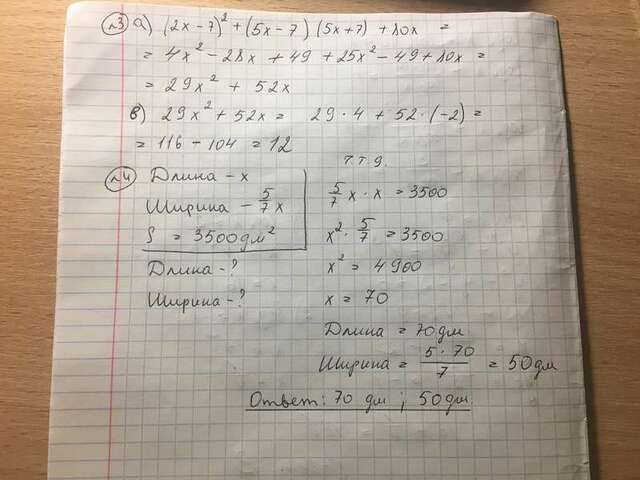 №3 а) (2x-7)² + (5x-7)(5x+7) + 80x =
= 4x² - 28x + 49 + 25x² - 49 + 80x =
= 29x² + 52x
в) 29x² + 52x = 29·4 + 52·(-2) =
= 116 - 104 = 12
№4 Длина - x
Ширина - 5/7 x
S = 3500 дм²
Длина - ?
Ширина - ?
т.г.д.
5/7 x · x = 3500
x² · 5/7 = 3500
x² = 4900
x = 70
Длина = 70 дм
Ширина = 5·70/7 = 50 дм
Ответ: 70 дм; 50 дм